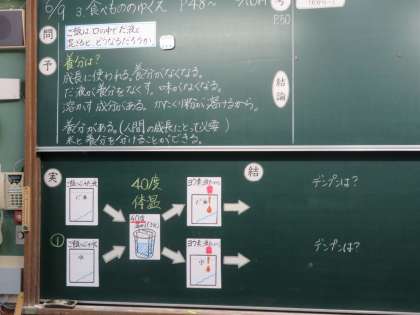 6/9 3.食べもののゆくえ P48~
考
P.50
問
ご飯は口の中でだ液と
混ざると どうなるだろうか。
予
養分は?
成長に使われる。養分がなくなる。
だ液が養分をなくす。味がなくなる。
溶かす成分がある。かたくり粉が溶けるから。
養分がある。(人間の成長にとって必要)
米と養分を分けることができる。
結論
実
結
40度
体温
40度
デンプンは?
①
デンプンは?